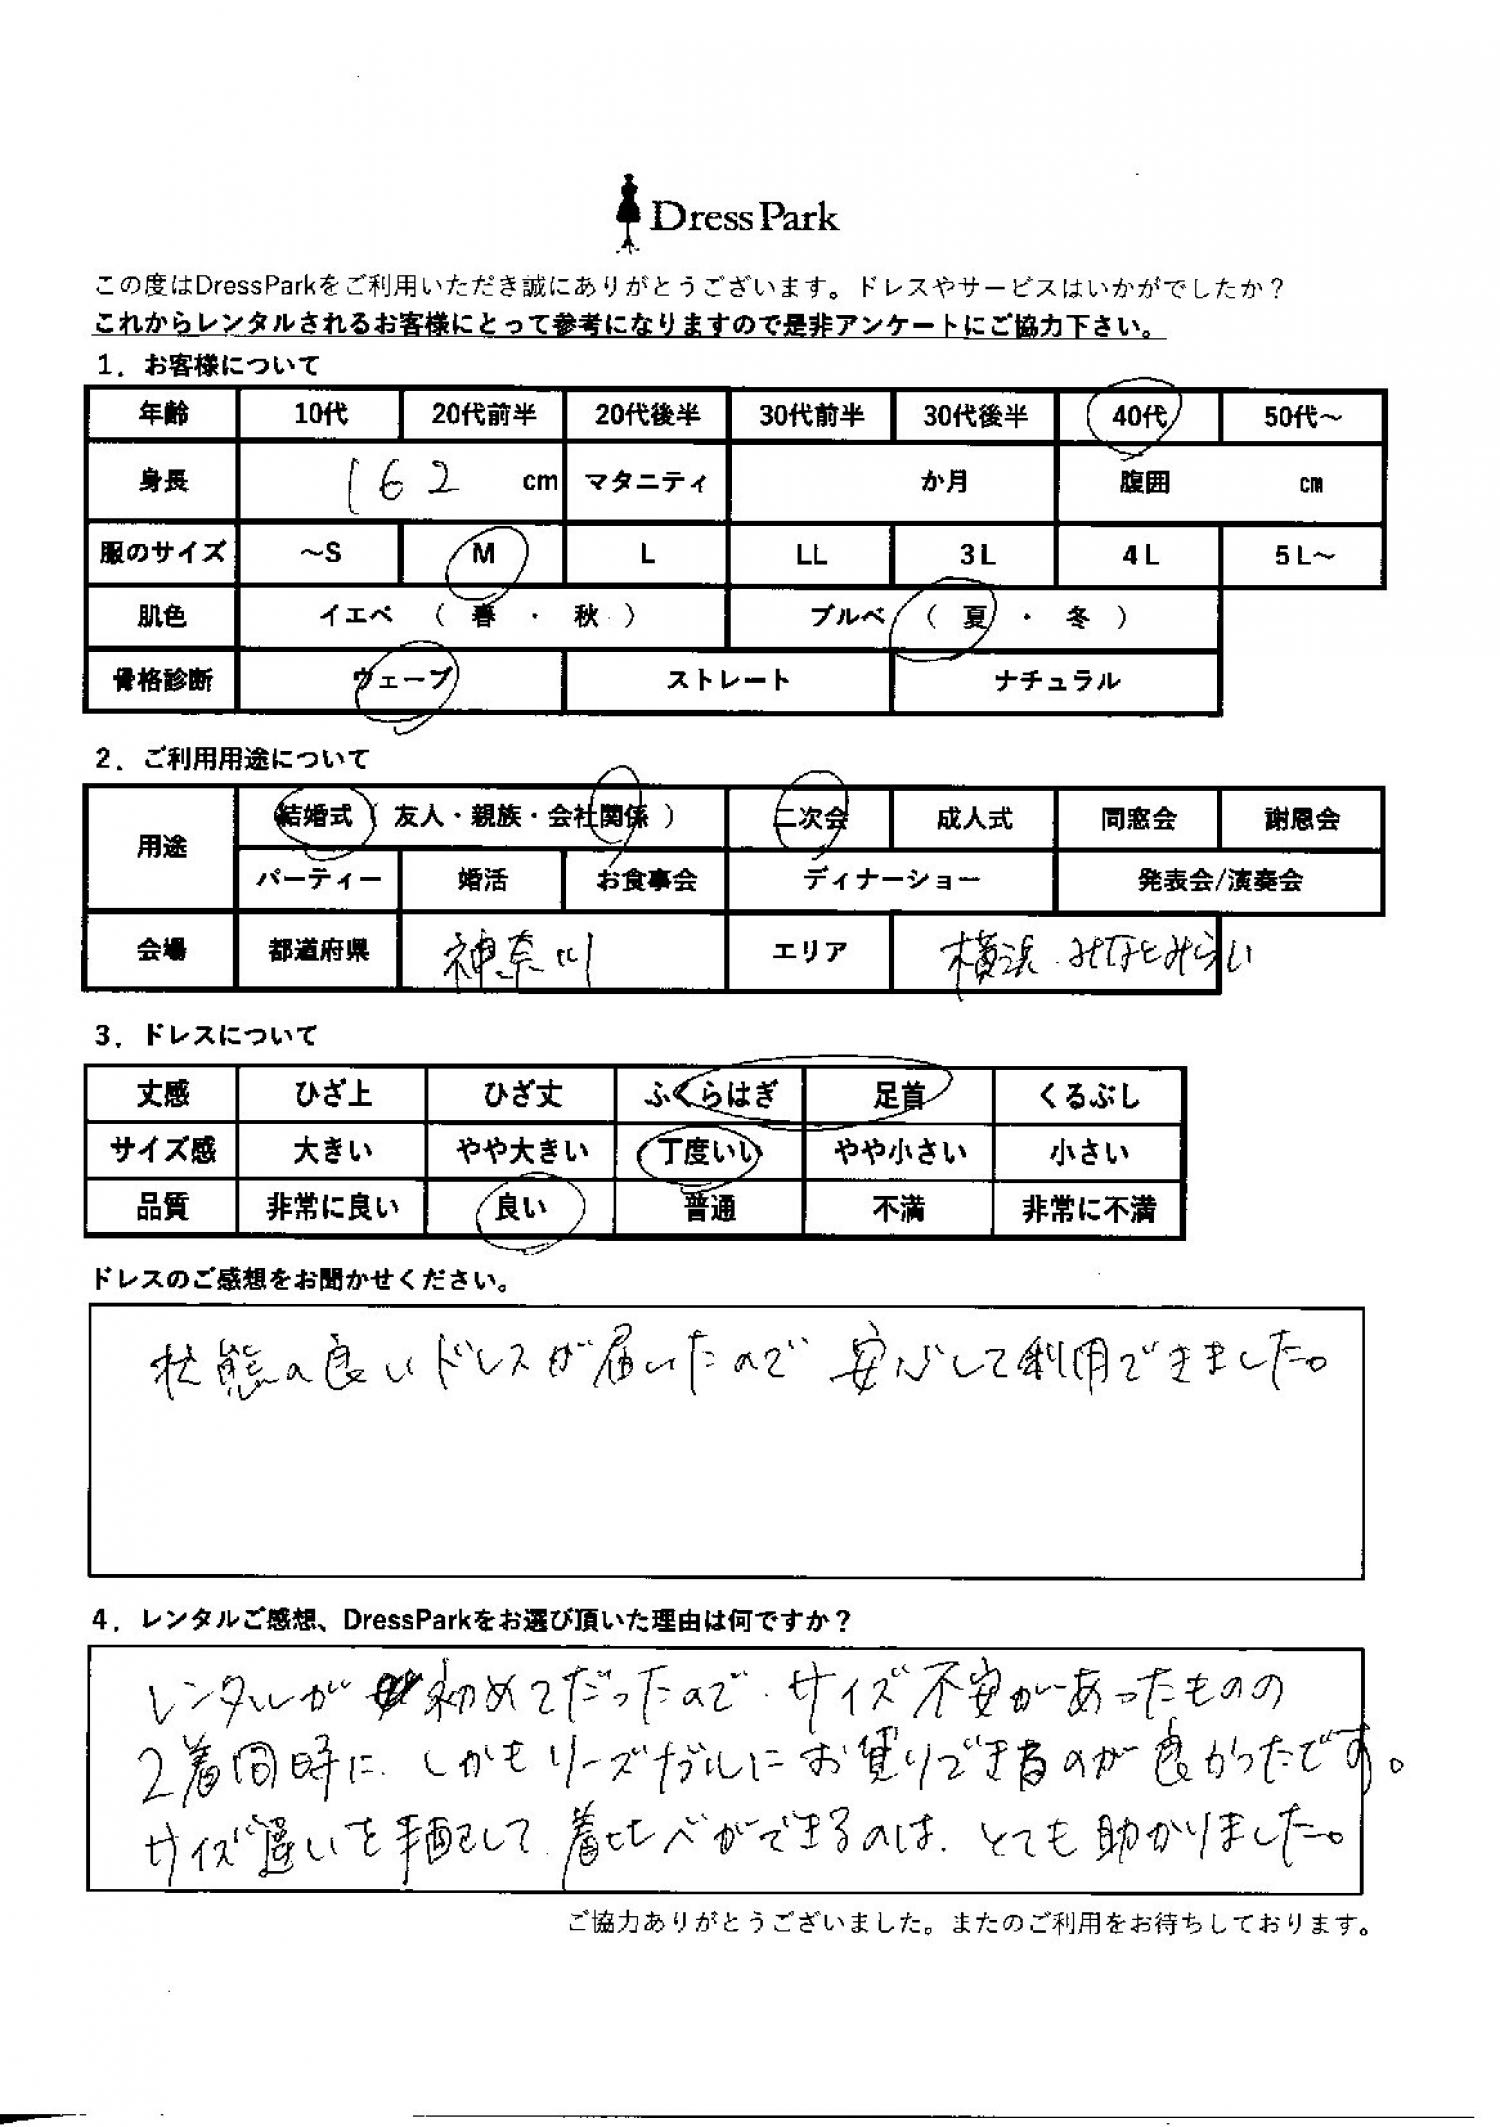 Dress Park
この度はDressParkをご利用いただき誠にありがとうございます。ドレスやサービスはいかがでしたか？
これからレンタルされるお客様にとって参考になりますので是非アンケートにご協力下さい。
1．お客様について
年齢 10代 20代前半 20代後半 30代前半 30代後半 40代 50代～
身長 162 cm マタニティ か月 腹囲 cm
服のサイズ ～S M L LL 3L 4L 5L～
肌色 イエベ （ 春 ・ 秋 ） ブルベ （ 夏 ・ 冬 ）
骨格診断 ウェーブ ストレート ナチュラル
2．ご利用用途について
用途 結婚式（ 友人・親族・会社関係 ） 二次会 成人式 同窓会 謝恩会
パーティー 婚活 お食事会 ディナーショー 発表会/演奏会
会場 都道府県 神奈川 エリア 横浜．みなとみらい
3．ドレスについて
丈感 ひざ上 ひざ丈 ふくらはぎ 足首 くるぶし
サイズ感 大きい やや大きい 丁度いい やや小さい 小さい
品質 非常に良い 良い 普通 不満 非常に不満
ドレスのご感想をお聞かせください。
状態の良いドレスが届いたので 安心して利用できました。
4．レンタルご感想、DressParkをお選び頂いた理由は何ですか？
レンタルが 初めてだったので、サイズ不安があったものの
2着同時に、しかもリーズナブルにお借りできるのが良かったです。
サイズ違いを手配して、着比べができるのは、とても助かりました。
ご協力ありがとうございました。またのご利用をお待ちしております。